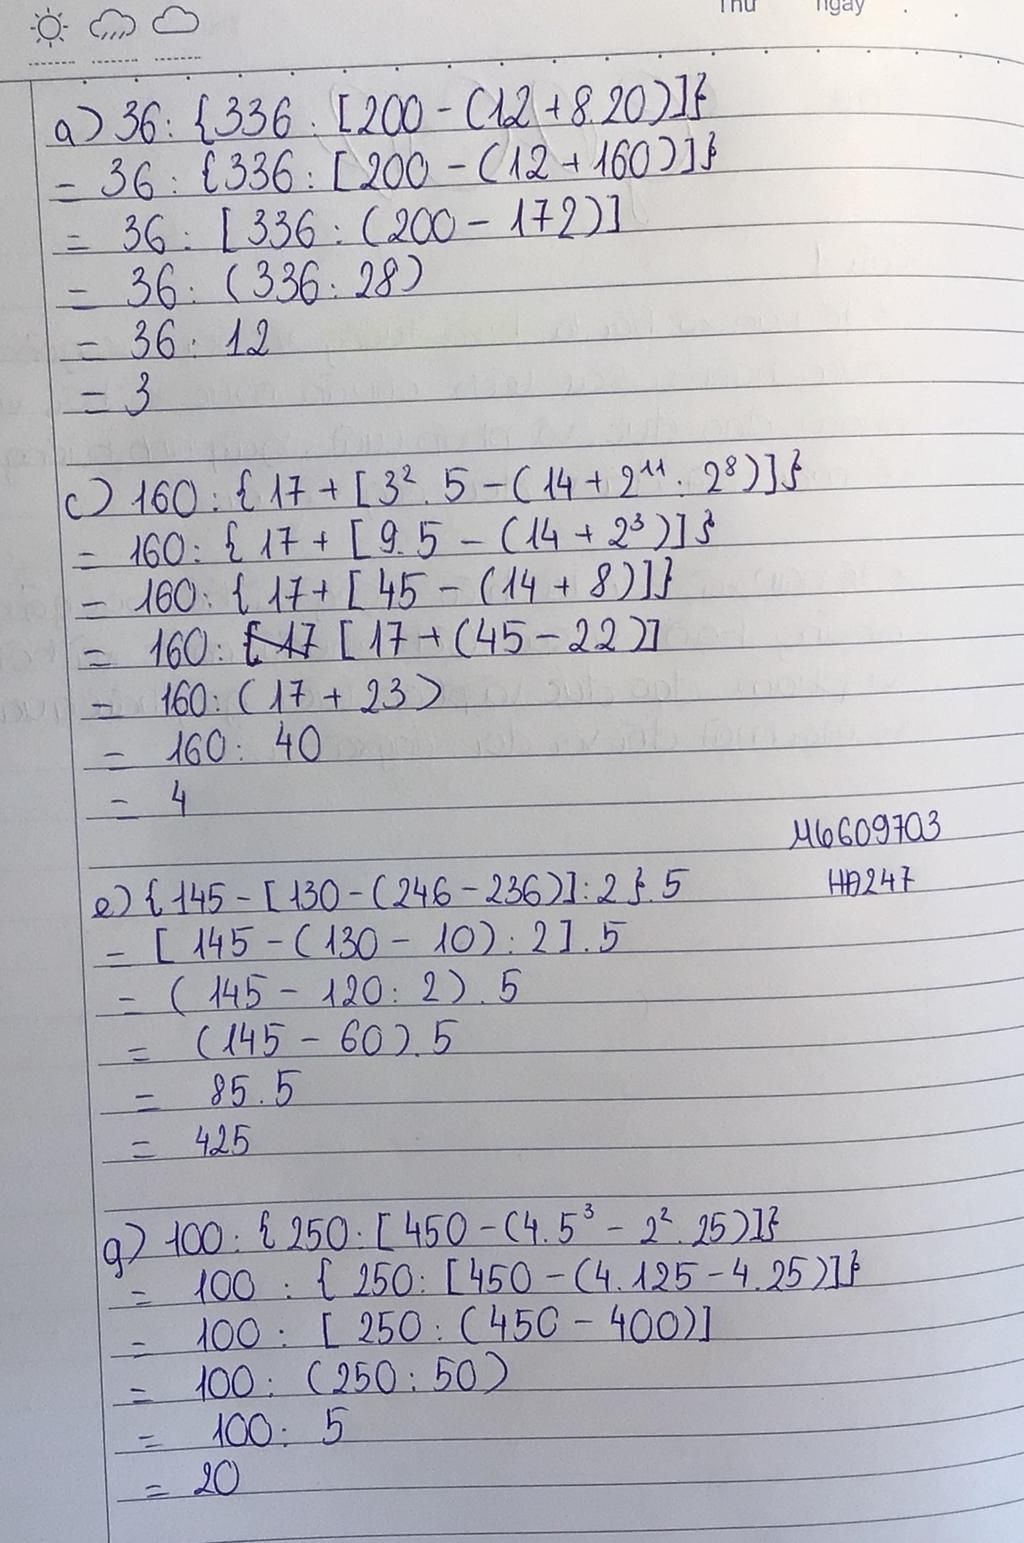 Thứ ngày . .
a) 36 : {336 : [200 - (12 + 8.20)]}
= 36 : {336 : [200 - (12 + 160)]}
= 36 : [336 : (200 - 172)]
= 36 : (336 : 28)
= 36 : 12
= 3
c) 160 : {17 + [3² . 5 - (14 + 2¹¹ : 2⁸)]}
= 160 : {17 + [9.5 - (14 + 2³)]}
= 160 : {17 + [45 - (14 + 8)]}
= 160 : [17 + (45 - 22)]
= 160 : (17 + 23)
= 160 : 40
= 4
M6609703
HĐ247
e) {145 - [130 - (246 - 236)] : 2} . 5
= [145 - (130 - 10) : 2] . 5
= (145 - 120 : 2) . 5
= (145 - 60) . 5
= 85 . 5
= 425
g) 100 : {250 : [450 - (4.5³ - 2² . 25)]}
= 100 : {250 : [450 - (4.125 - 4.25)]}
= 100 : [250 : (450 - 400)]
= 100 : (250 : 50)
= 100 : 5
= 20